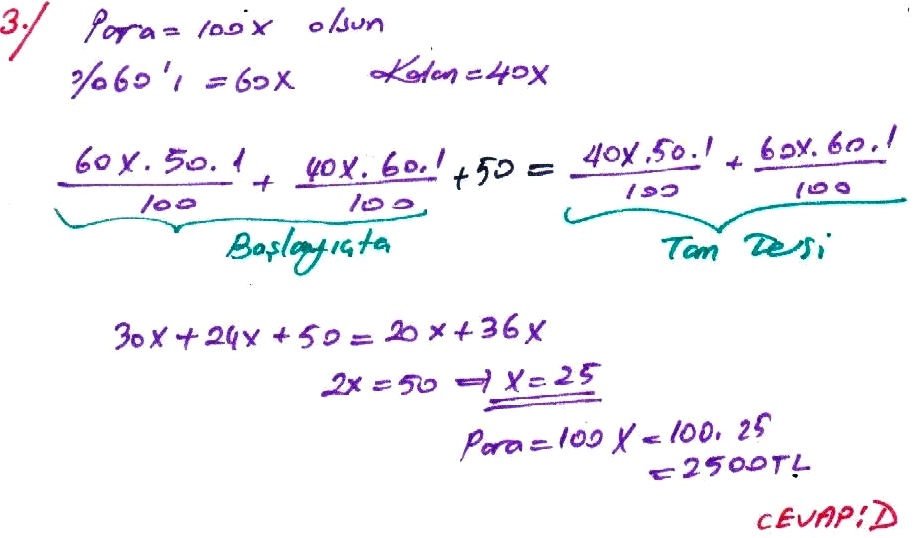 3./ Para = 100x olsun
%60'ı = 60x Kalan = 40x
60x.50.1/100 + 40x.60.1/100 + 50 = 40x.50.1/100 + 60x.60.1/100
Başlangıçta Tam Tersi
30x + 24x + 50 = 20x + 36x
2x = 50 ⇒ x = 25
Para = 100x = 100.25
= 2500TL
CEVAP:D